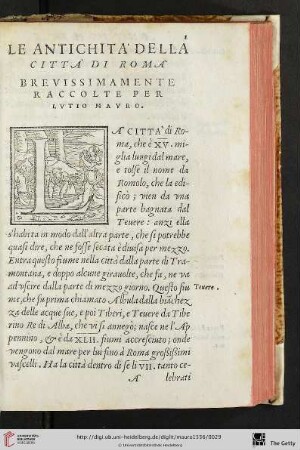 LE ANTICHITA' DELLA
CITTA DI ROMA
BREVISSIMAMENTE
RACCOLTE PER
LVTIO MAVRO.
LA CITTA' di Ro-
ma, che è XV. mi-
glia lungi dal mare,
e tolse il nome da
Romolo, che la edi-
ficò; vien da vna
parte bagnata dal
Teuere: anzi ella
s'habita in modo dall'altra parte, che si potrebbe
quasi dire, che ne fosse secata e diuisa per mezzo.
Entra questo fiume nella città dalla parte di Tra-
montana, e doppo alcune girauolte, che fa, ne va
ad vscire dalla parte di mezzo giorno. Questo fiu
me, che fa prima chiamato Albula dalla biāchez
za delle acque sue, e poi Tiberi, e Teuere da Tibe
rino Re di Alba, che vi si annegò; nasce ne l'Ap
pennino, & è da XLII. fiumi accresciuto; onde
vengono dal mare per lui sino à Roma grossissimi
vascelli. Ha la città dentro di se li VII. tanto ce-
Teuere.
A lebrati
http://digi.ub.uni-heidelberg.de/diglit/mauro1556/0029
© Universitätsbibliothek Heidelberg
The Getty